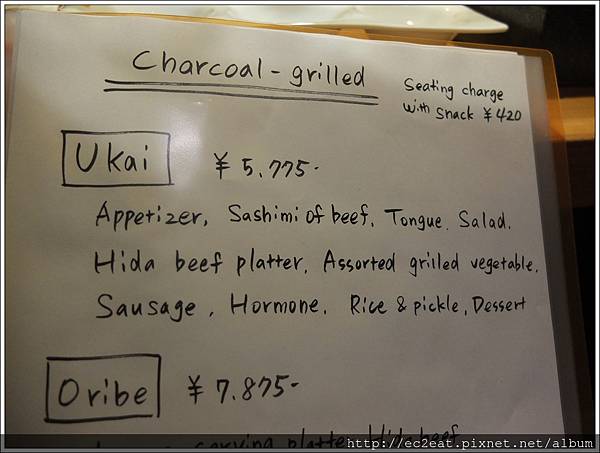 Charcoal-grilled
Seating charge
with snack ¥420
Ukai ¥5,775-
Appetizer, Sashimi of beef, Tongue, Salad,
Hida beef platter, Assorted grilled vegetable,
Sausage, Hormone, Rice & pickle, Dessert
Oribe ¥7,875-
carving platter, Hida beef
http://ec2eat.pixnet.net/album